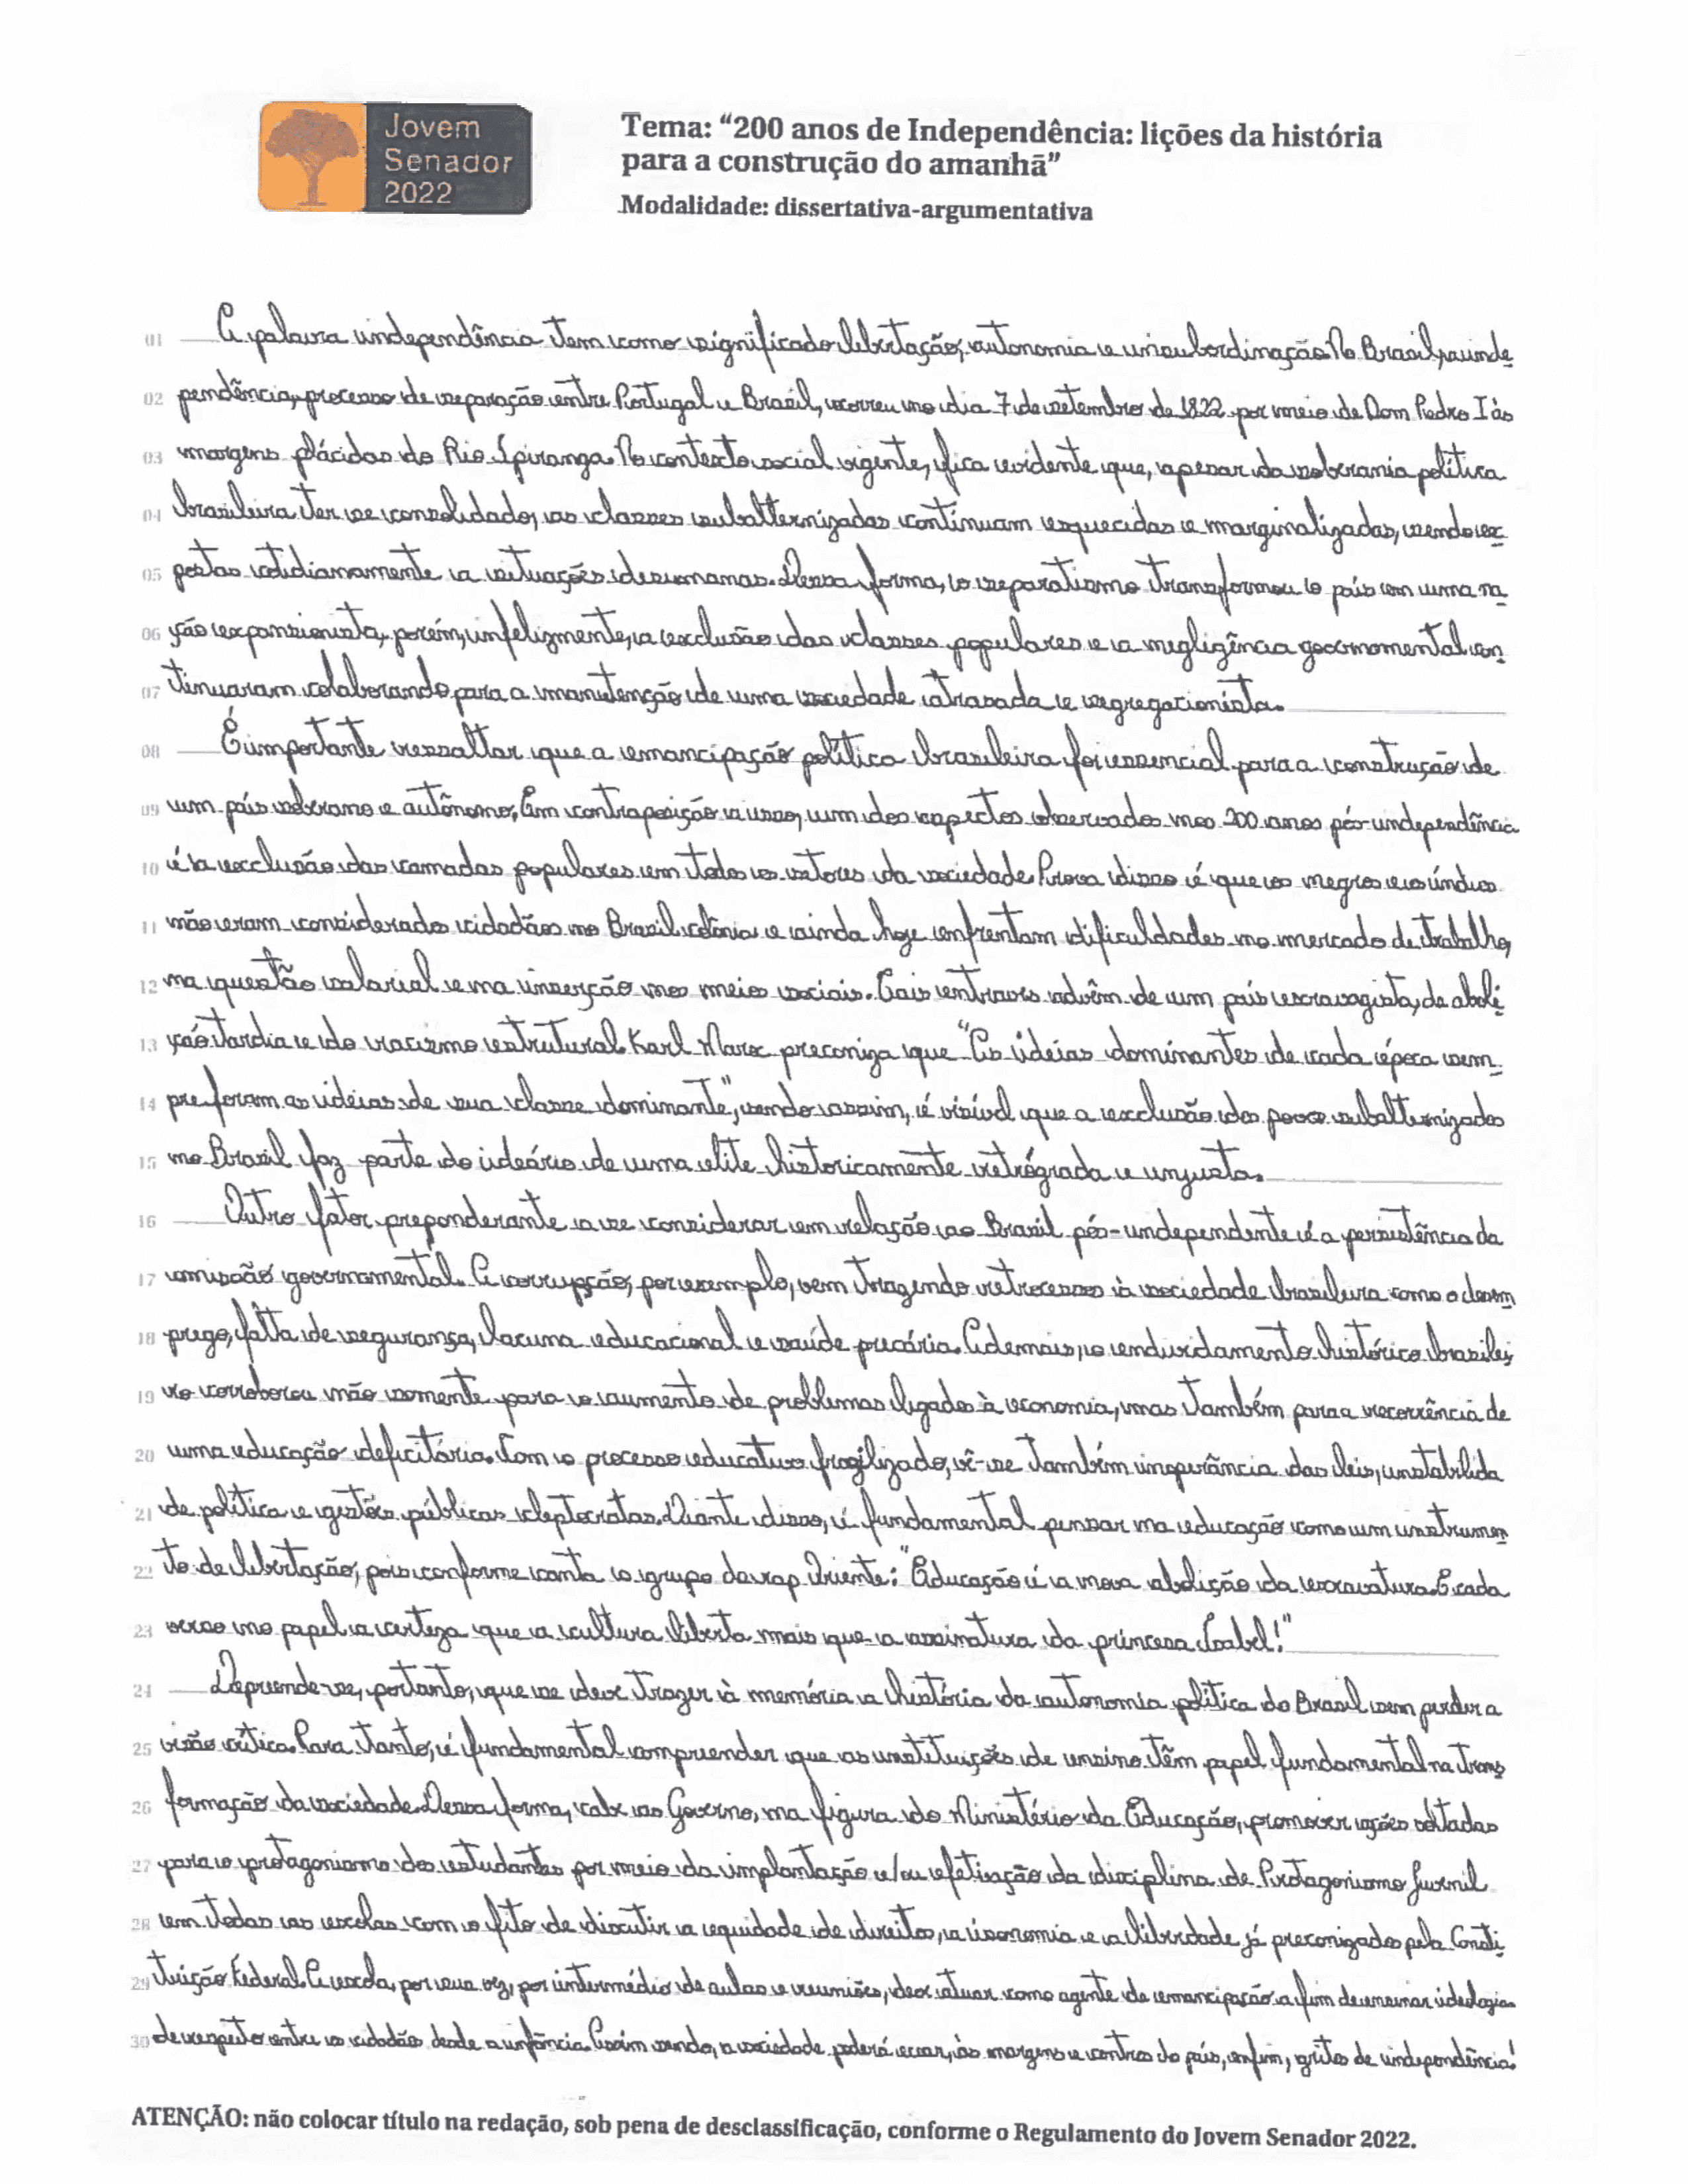 Jovem
Senador
2022
Tema: “200 anos de Independência: lições da história
para a construção do amanhã”
Modalidade: dissertativa-argumentativa
01 A palavra independência tem como significado libertação, autonomia e insubordinação. No Brasil, a inde
02 pendência, processo de separação entre Portugal e Brasil, ocorreu no dia 7 de setembro de 1822 por meio de Dom Pedro I às
03 margens plácidas do Rio Ipiranga. No contexto social vigente, fica evidente que, apesar da soberania política
04 brasileira ter se consolidado, as classes subalternizadas continuam esquecidas e marginalizadas, sendo ex
05 postas cotidianamente a situações desumanas. Dessa forma, o separatismo transformou o país em uma na
06 ção expansionista, porém, infelizmente, a exclusão das classes populares e a negligência governamental con
07 tinuaram colaborando para a manutenção de uma sociedade atrasada e segregacionista.
08 É importante ressaltar que a emancipação política brasileira foi essencial para a construção de
09 um país soberano e autônomo. Em contraposição a isso, um dos aspectos observados nos 200 anos pós-independência
10 é a exclusão das camadas populares em todos os setores da sociedade. Prova disso é que os negros e os índios
11 não eram considerados cidadãos no Brasil colônia e ainda hoje enfrentam dificuldades no mercado de trabalho,
12 na questão salarial e na inserção nos meios sociais. Tais entraves advêm de um país escravagista, da aboli
13 ção tardia e do racismo estrutural. Karl Marx preconiza que “As ideias dominantes de cada época sem
14 pre foram as ideias de sua classe dominante”, sendo assim, é visível que a exclusão dos povos subalternizados
15 no Brasil faz parte do ideário de uma elite historicamente retrógrada e injusta.
16 Outro fator preponderante a se considerar em relação ao Brasil pós-independente é a persistência da
17 omissão governamental. A corrupção, por exemplo, vem trazendo retrocessos à sociedade brasileira como o desem
18 prego, falta de segurança, lacuna educacional e saúde precária. Ademais, o endividamento histórico brasilei
19 ro corroborou não somente para o aumento de problemas ligados à economia, mas também para a recorrência de
20 uma educação deficitária. Com o processo educativo fragilizado, vê-se também inoperância das leis, instabilida
21 de política e gestões públicas cleptocratas. Diante disso, é fundamental pensar na educação como um instrumen
22 to de libertação, pois conforme canta o grupo de rap Oriente: "Educação é a nova abolição da escravatura. E cada
23 verso no papel a certeza que a cultura liberta mais que a assinatura da princesa Isabel!"
24 Depreende-se, portanto, que se deve trazer à memória a história da autonomia política do Brasil sem perder a
25 visão crítica. Para tanto, é fundamental compreender que as instituições de ensino têm papel fundamental na trans
26 formação da sociedade. Dessa forma, cabe ao Governo, na figura do Ministério da Educação, promover ações voltadas
27 para o protagonismo dos estudantes por meio da implantação e/ou efetivação da disciplina de Protagonismo Juvenil
28 em todas as escolas com o fito de discutir a equidade de direitos, a isonomia e a liberdade já preconizados pela Consti
29 tuição Federal. A escola, por sua vez, por intermédio de aulas e reuniões, deve atuar como agente da emancipação a fim de ensinar ideologias
30 de respeito entre os cidadãos desde a infância. Assim sendo, a sociedade poderá ecoar, às margens e centros do país, enfim, gritos de independência!
ATENÇÃO: não colocar título na redação, sob pena de desclassificação, conforme o Regulamento do Jovem Senador 2022.